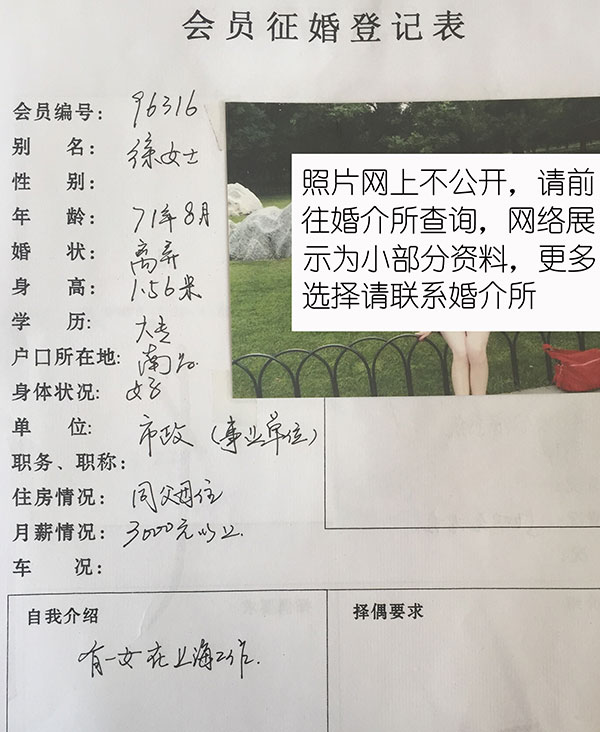 会员征婚登记表
会员编号： 96316
别 名： 徐女士
性 别：
年 龄： 71年8月
婚 状： 离异
身 高： 1.56米
学 历： 大专
户口所在地： 南昌
身体状况： 好
单 位： 市政（事业单位）
职务、职称：
住房情况： 同父母住
月薪情况： 3000元以上
车 况：
照片网上不公开，请前
往婚介所查询，网络展
示为小部分资料，更多
选择请联系婚介所
自我介绍
有一女在上海工作.
择偶要求